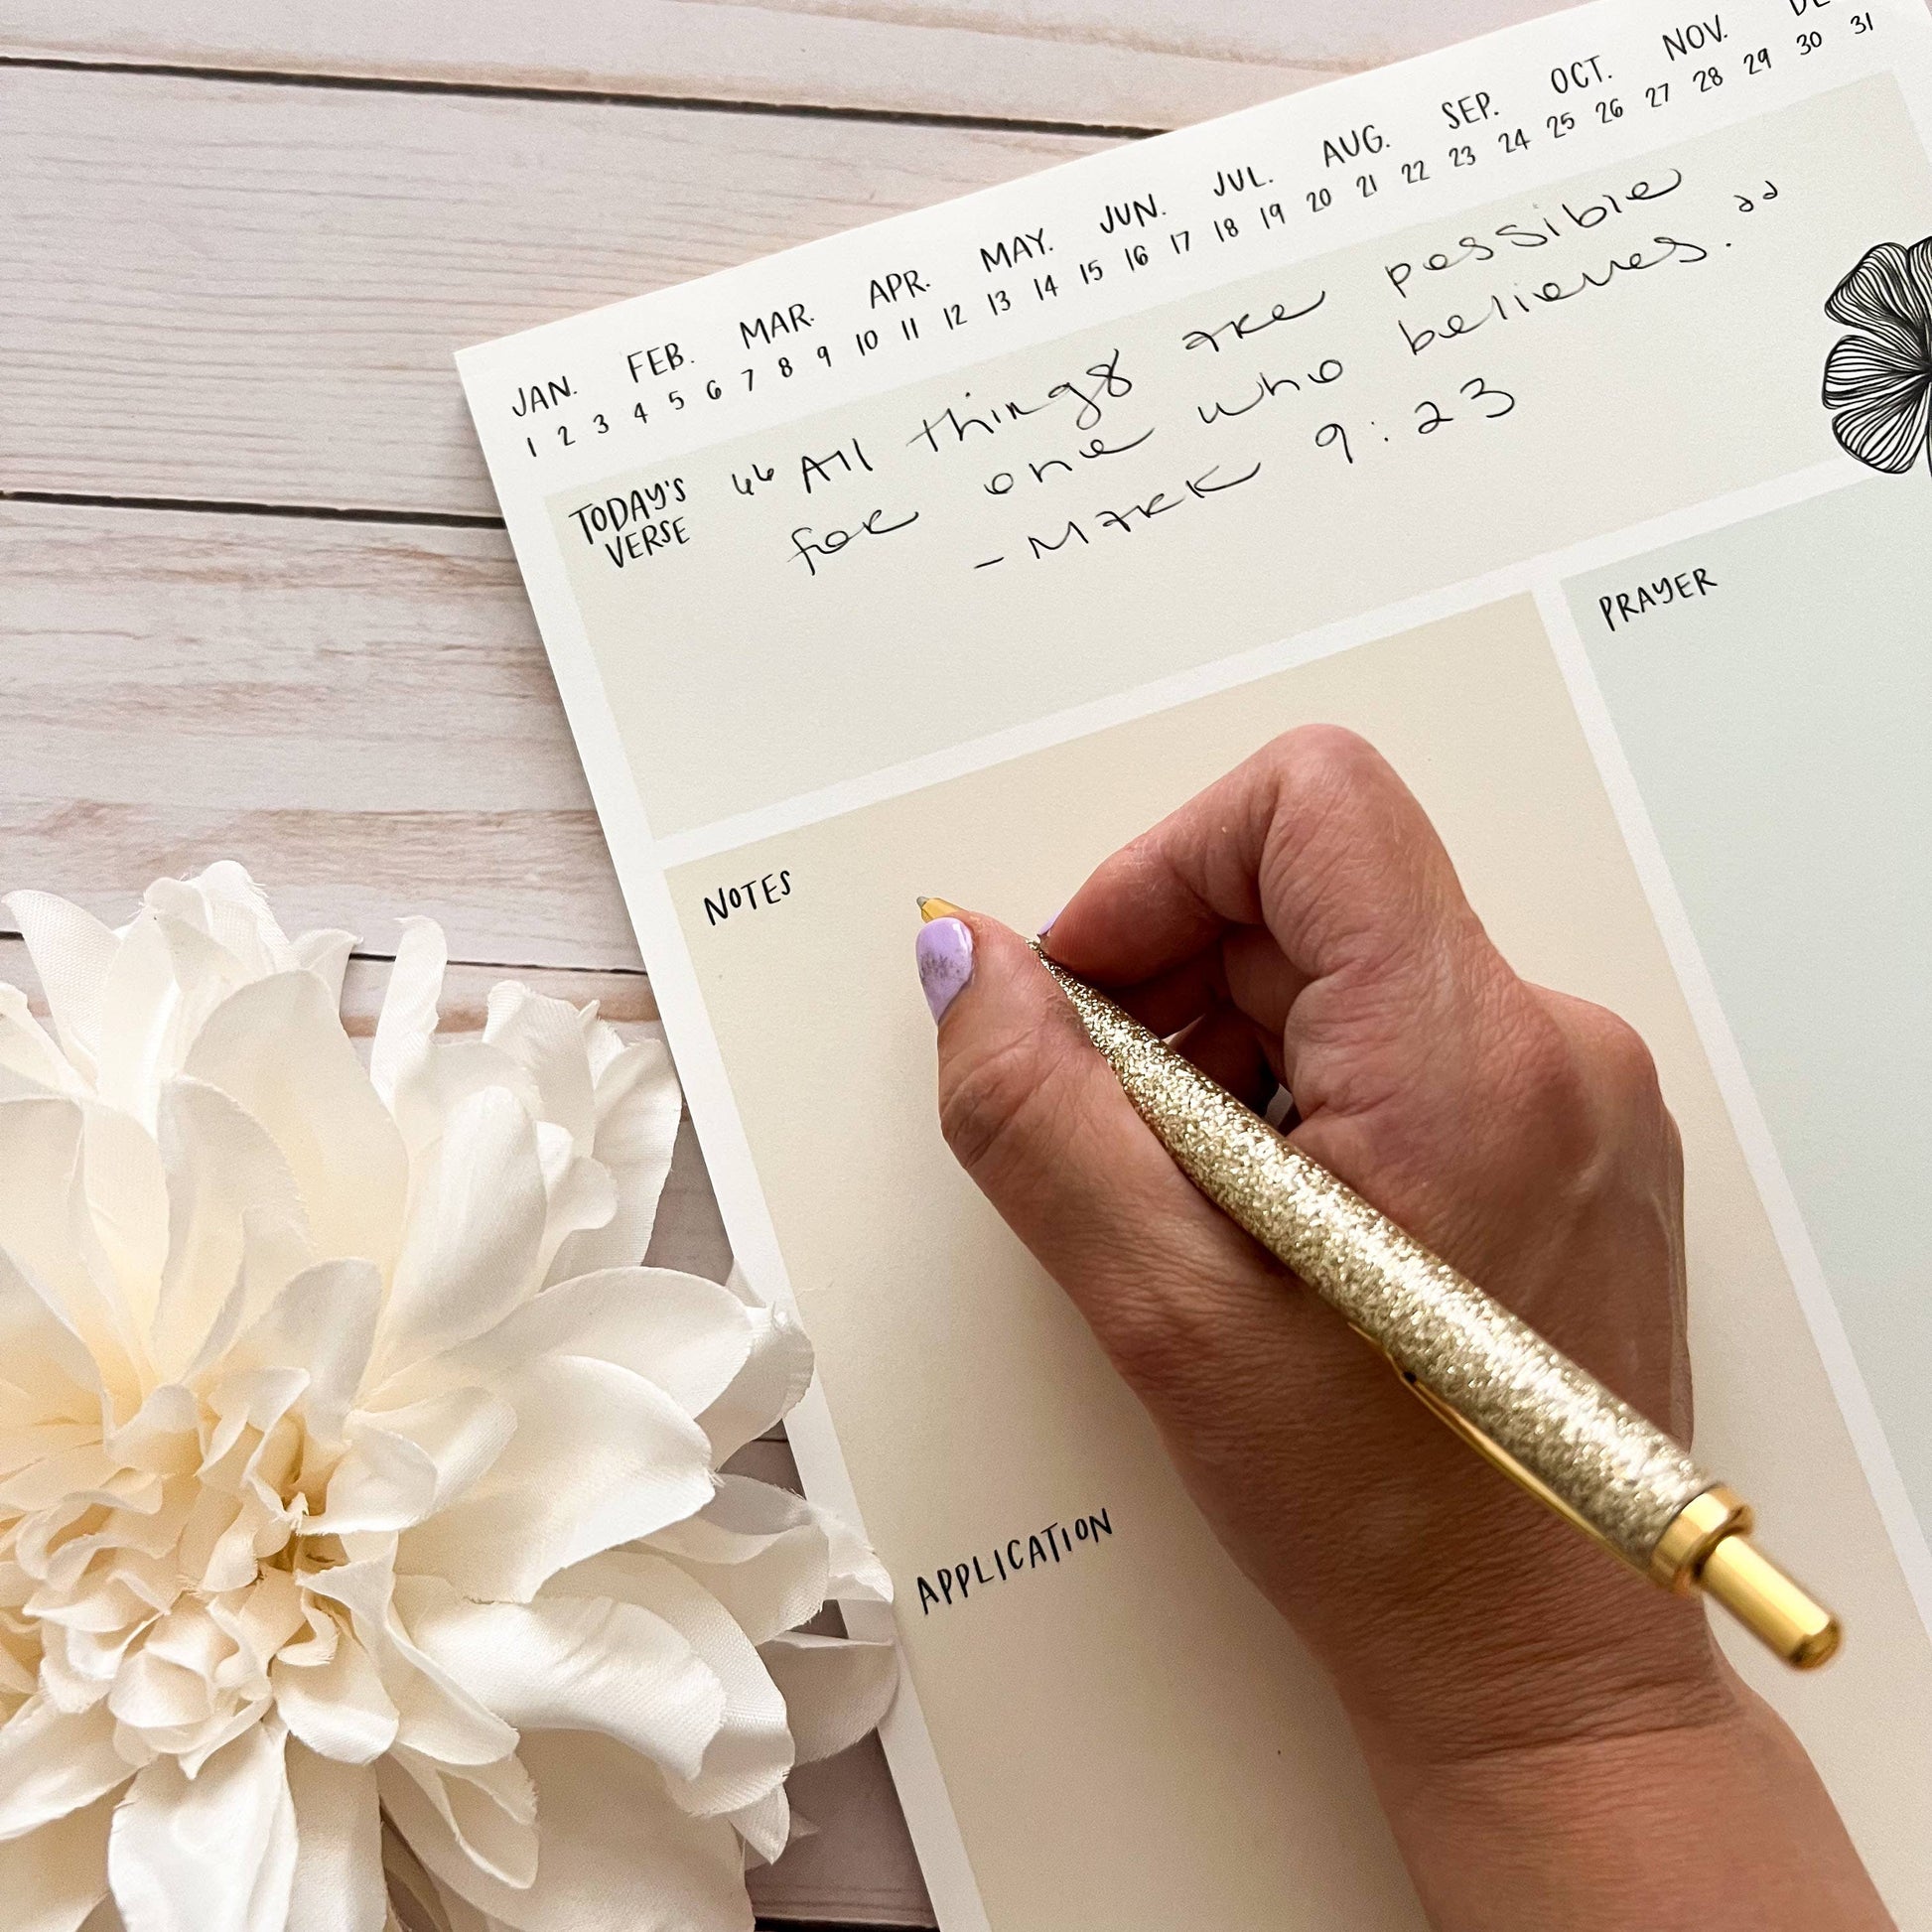 JAN. FEB. MAR. APR. MAY. JUN. JUL. AUG. SEP. OCT. NOV.
1 2 3 4 5 6 7 8 9 10 11 12 13 14 15 16 17 18 19 20 21 22 23 24 25 26 27 28 29 30 31
TODAY'S
VERSE
“All things are possible
for one who believes.”
- Mark 9:23
PRAYER
NOTES
APPLICATION